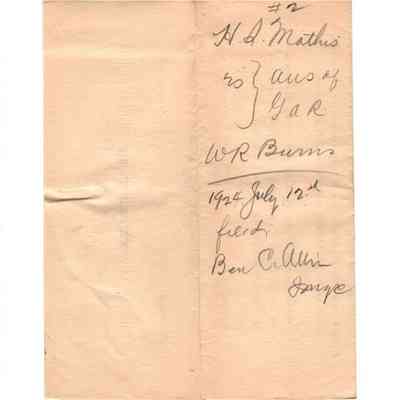 #2
H. S. Mathis
vs } ans of
G & R
W R Burns
1924 July 12d
filed
Ben C. Allin
Judge